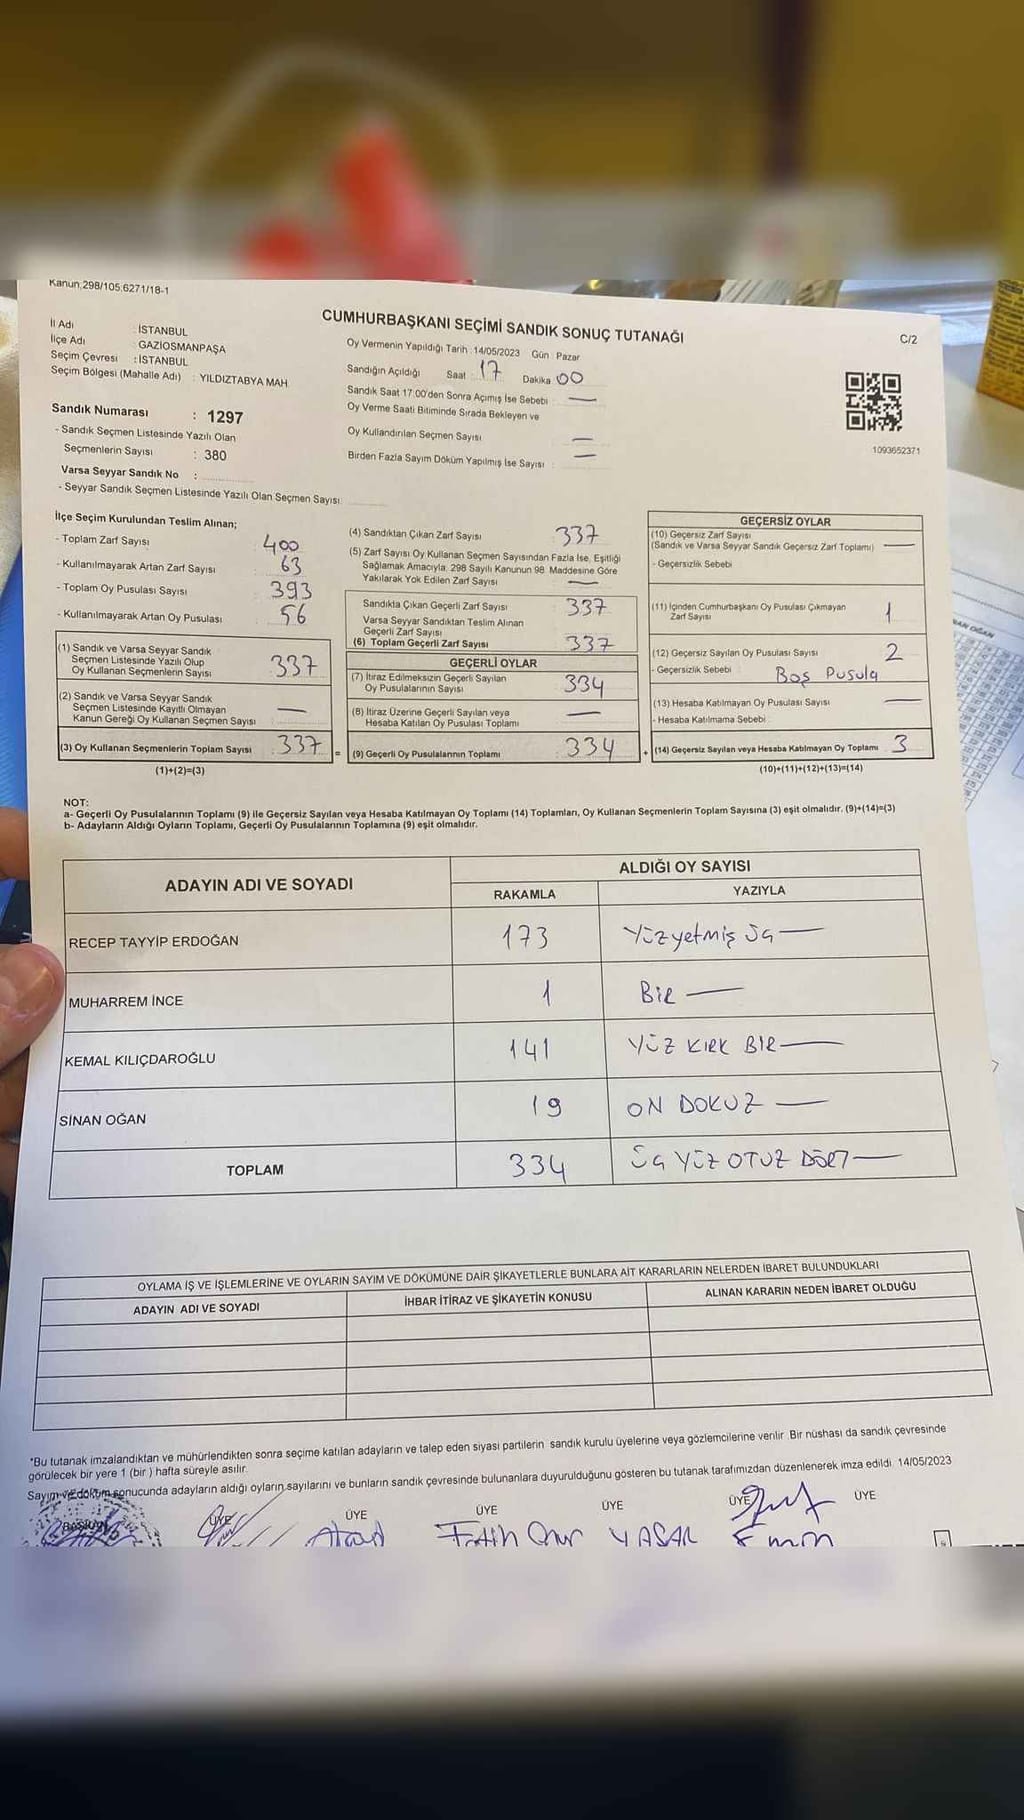 Kanun;298/105;6271/18-1
CUMHURBAŞKANI SEÇİMİ SANDIK SONUÇ TUTANAĞI
C/2
İl Adı : İSTANBUL
İlçe Adı : GAZİOSMANPAŞA
Seçim Çevresi : İSTANBUL
Seçim Bölgesi (Mahalle Adı) : YILDIZTABYA MAH.
Oy Vermenin Yapıldığı Tarih : 14/05/2023 Gün : Pazar
Sandığın Açıldığı Saat : 17 Dakika 00
Sandık Saat 17:00'den Sonra Açımış İse Sebebi : —
Oy Verme Saati Bitiminde Sırada Bekleyen ve
Oy Kullandırılan Seçmen Sayısı —
Birden Fazla Sayım Döküm Yapılmış İse Sayısı : —
1093652371
Sandık Numarası : 1297
- Sandık Seçmen Listesinde Yazılı Olan
Seçmenlerin Sayısı : 380
Varsa Seyyar Sandık No :
- Seyyar Sandık Seçmen Listesinde Yazılı Olan Seçmen Sayısı:
İlçe Seçim Kurulundan Teslim Alınan;
- Toplam Zarf Sayısı : 400
- Kullanılmayarak Artan Zarf Sayısı : 63
- Toplam Oy Pusulası Sayısı : 393
- Kullanılmayarak Artan Oy Pusulası : 56
(1) Sandık ve Varsa Seyyar Sandık
Seçmen Listesinde Yazılı Olup
Oy Kullanan Seçmenlerin Sayısı : 337
(2) Sandık ve Varsa Seyyar Sandık
Seçmen Listesinde Kayıtlı Olmayan
Kanun Gereği Oy Kullanan Seçmen Sayısı : —
(3) Oy Kullanan Seçmenlerin Toplam Sayısı : 337
(1)+(2)=(3)
(4) Sandıktan Çıkan Zarf Sayısı : 337
(5) Zarf Sayısı Oy Kullanan Seçmen Sayısından Fazla İse, Eşitliği
Sağlamak Amacıyla, 298 Sayılı Kanunun 98. Maddesine Göre
Yakılarak Yok Edilen Zarf Sayısı : —
Sandıkta Çıkan Geçerli Zarf Sayısı : 337
Varsa Seyyar Sandıktan Teslim Alınan
Geçerli Zarf Sayısı
(6) Toplam Geçerli Zarf Sayısı : 337
GEÇERLİ OYLAR
(7) İtiraz Edilmeksizin Geçerli Sayılan
Oy Pusulalarının Sayısı : 334
(8) İtiraz Üzerine Geçerli Sayılan veya
Hesaba Katılan Oy Pusulası Toplamı : —
= (9) Geçerli Oy Pusulalarının Toplamı : 334
GEÇERSİZ OYLAR
(10) Geçersiz Zarf Sayısı
(Sandık ve Varsa Seyyar Sandık Geçersiz Zarf Toplamı) —
- Geçersizlik Sebebi :
(11) İçinden Cumhurbaşkanı Oy Pusulası Çıkmayan
Zarf Sayısı : 1
(12) Geçersiz Sayılan Oy Pusulası Sayısı : 2
- Geçersizlik Sebebi : Boş Pusula
(13) Hesaba Katılmayan Oy Pusulası Sayısı : —
- Hesaba Katılmama Sebebi :
+ (14) Geçersiz Sayılan veya Hesaba Katılmayan Oy Toplamı : 3
(10)+(11)+(12)+(13)=(14)
NOT:
a- Geçerli Oy Pusulalarının Toplamı (9) ile Geçersiz Sayılan veya Hesaba Katılmayan Oy Toplamı (14) Toplamları, Oy Kullanan Seçmenlerin Toplam Sayısına (3) eşit olmalıdır. (9)+(14)=(3)
b- Adayların Aldığı Oyların Toplamı, Geçerli Oy Pusulalarının Toplamına (9) eşit olmalıdır.
ADAYIN ADI VE SOYADI
ALDIĞI OY SAYISI
RAKAMLA YAZIYLA
RECEP TAYYİP ERDOĞAN 173 Yüzyetmiş üç —
MUHARREM İNCE 1 Bir —
KEMAL KILIÇDAROĞLU 141 YÜZ KIRK BİR —
SİNAN OĞAN 19 ON DOKUZ —
TOPLAM 334 ÜÇ YÜZ OTUZ DÖRT —
OYLAMA İŞ VE İŞLEMLERİNE VE OYLARIN SAYIM VE DÖKÜMÜNE DAİR ŞİKAYETLERLE BUNLARA AİT KARARLARIN NELERDEN İBARET BULUNDUKLARI
ADAYIN ADI VE SOYADI İHBAR İTİRAZ VE ŞİKAYETİN KONUSU ALINAN KARARIN NEDEN İBARET OLDUĞU
*Bu tutanak imzalandıktan ve mühürlendikten sonra seçime katılan adayların ve talep eden siyasi partilerin sandık kurulu üyelerine veya gözlemcilerine verilir. Bir nüshası da sandık çevresinde
görülecek bir yere 1 (bir ) hafta süreyle asılır.
Sayım ve döküm sonucunda adayların aldığı oyların sayılarını ve bunların sandık çevresinde bulunanlara duyurulduğunu gösteren bu tutanak tarafımızdan düzenlenerek imza edildi. 14/05/2023
BAŞKAN ÜYE ÜYE ÜYE ÜYE ÜYE ÜYE
Fatih Onur YAŞAR Emin